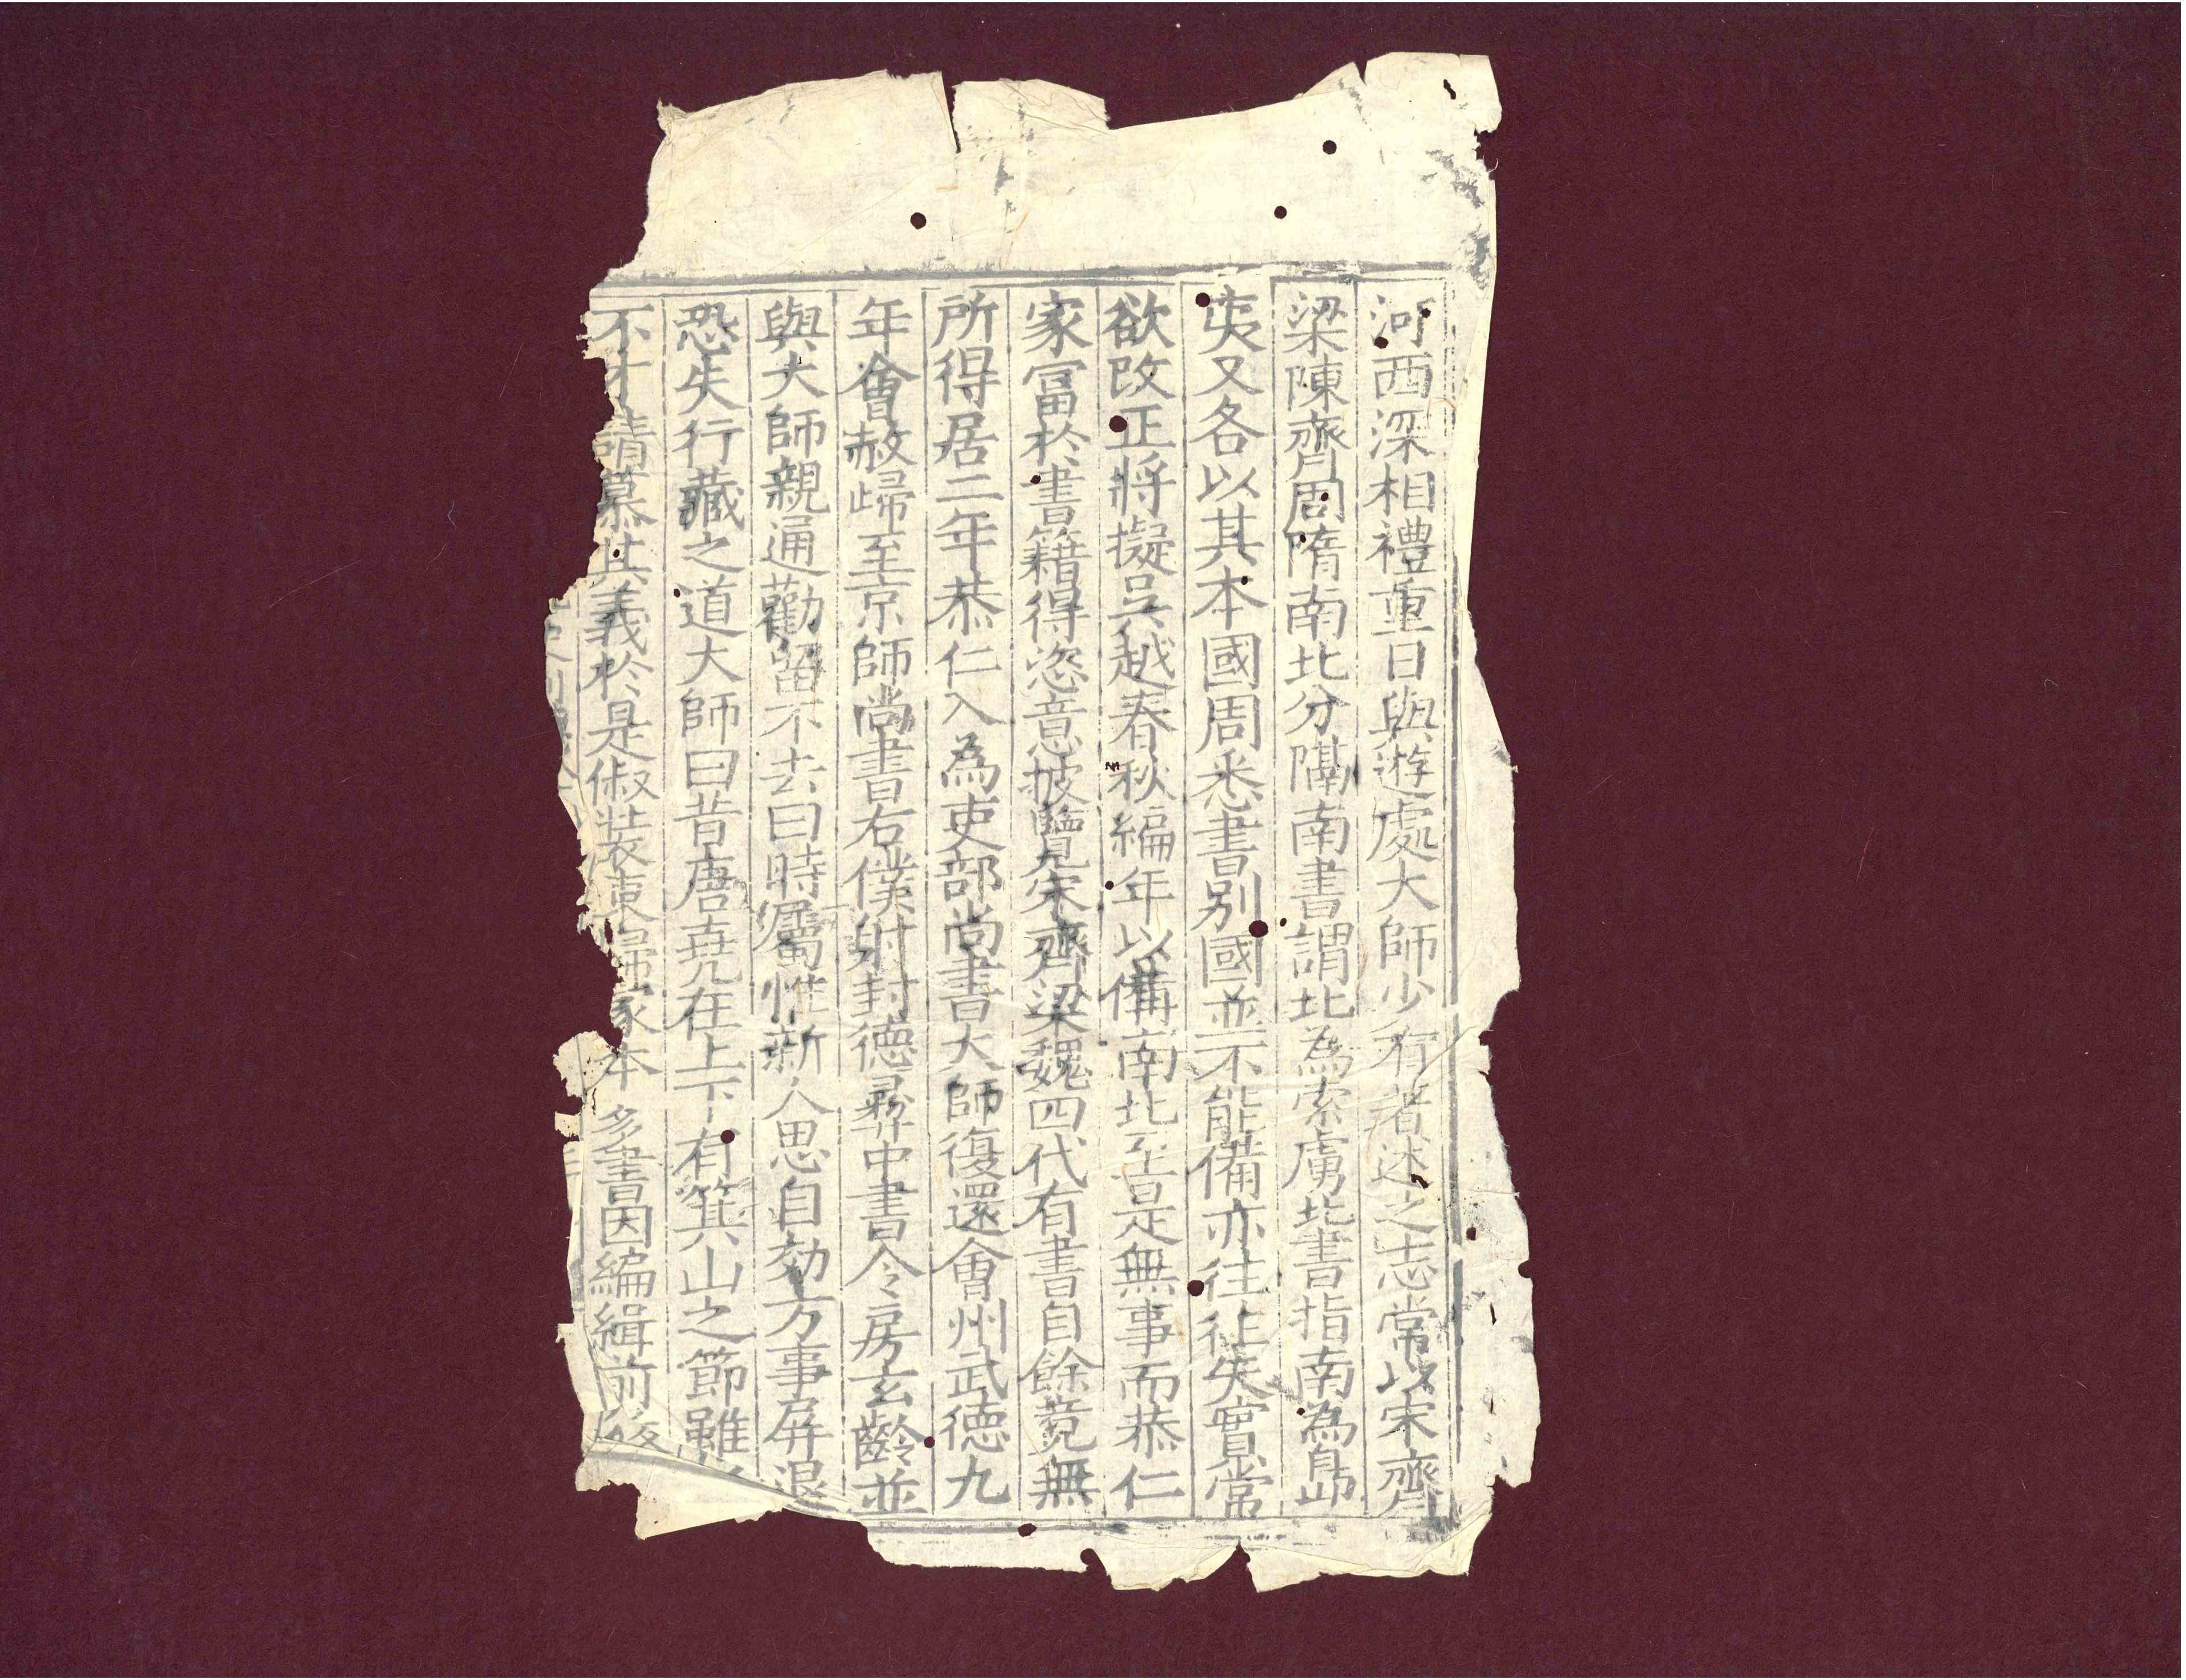 河西深相禮重日與遊處大師少有著述之志常以宋齊
梁陳齊周隋南北分隔南書謂北為索虜北書指南為島
夷又各以其本國周悉書別國並不能備亦往往失實常
欲改正將擬吳越春秋編年以備南北至是無事而恭仁
家富於書籍得恣意披覽宋齊梁魏四代有書自餘竟無
所得居二年恭仁入為吏部尚書大師復還會州武德九
年會赦歸至京師尚書右僕射封德彝中書令房玄齡並
與大師親通勸留不去曰時屬惟新人思自効方事屏退
恐失行藏之道大師曰昔唐堯在上下有箕山之節雖以
不才請慕其義於是俶裝東歸家本多書因編緝前後